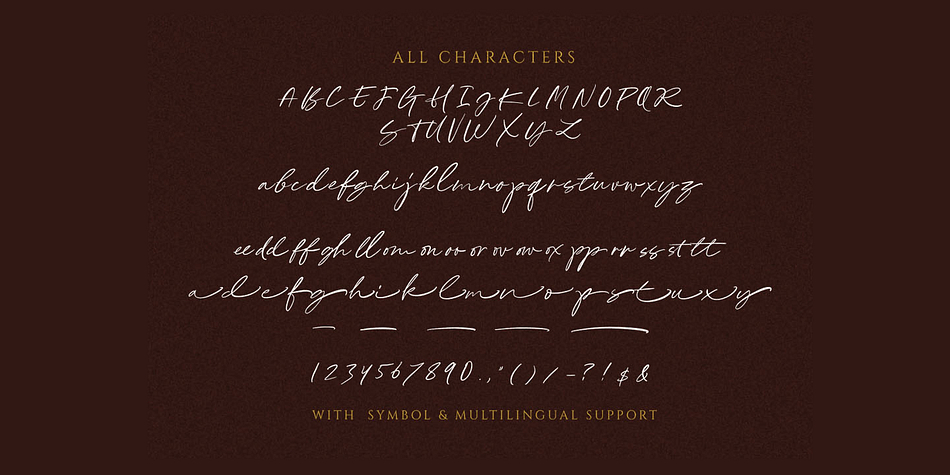 ALL CHARACTERS
ABCEFGHIJKLMNOPQR
STUVWXYZ
abcdefghijklmnopqrstuvwxyz
ee dd ff gh ll om on oo or ov ow ox pp rr ss st tt
a d e f g h i k l m n o p s t u x y
1234567890.,"()/-?!$&
WITH SYMBOL & MULTILINGUAL SUPPORT